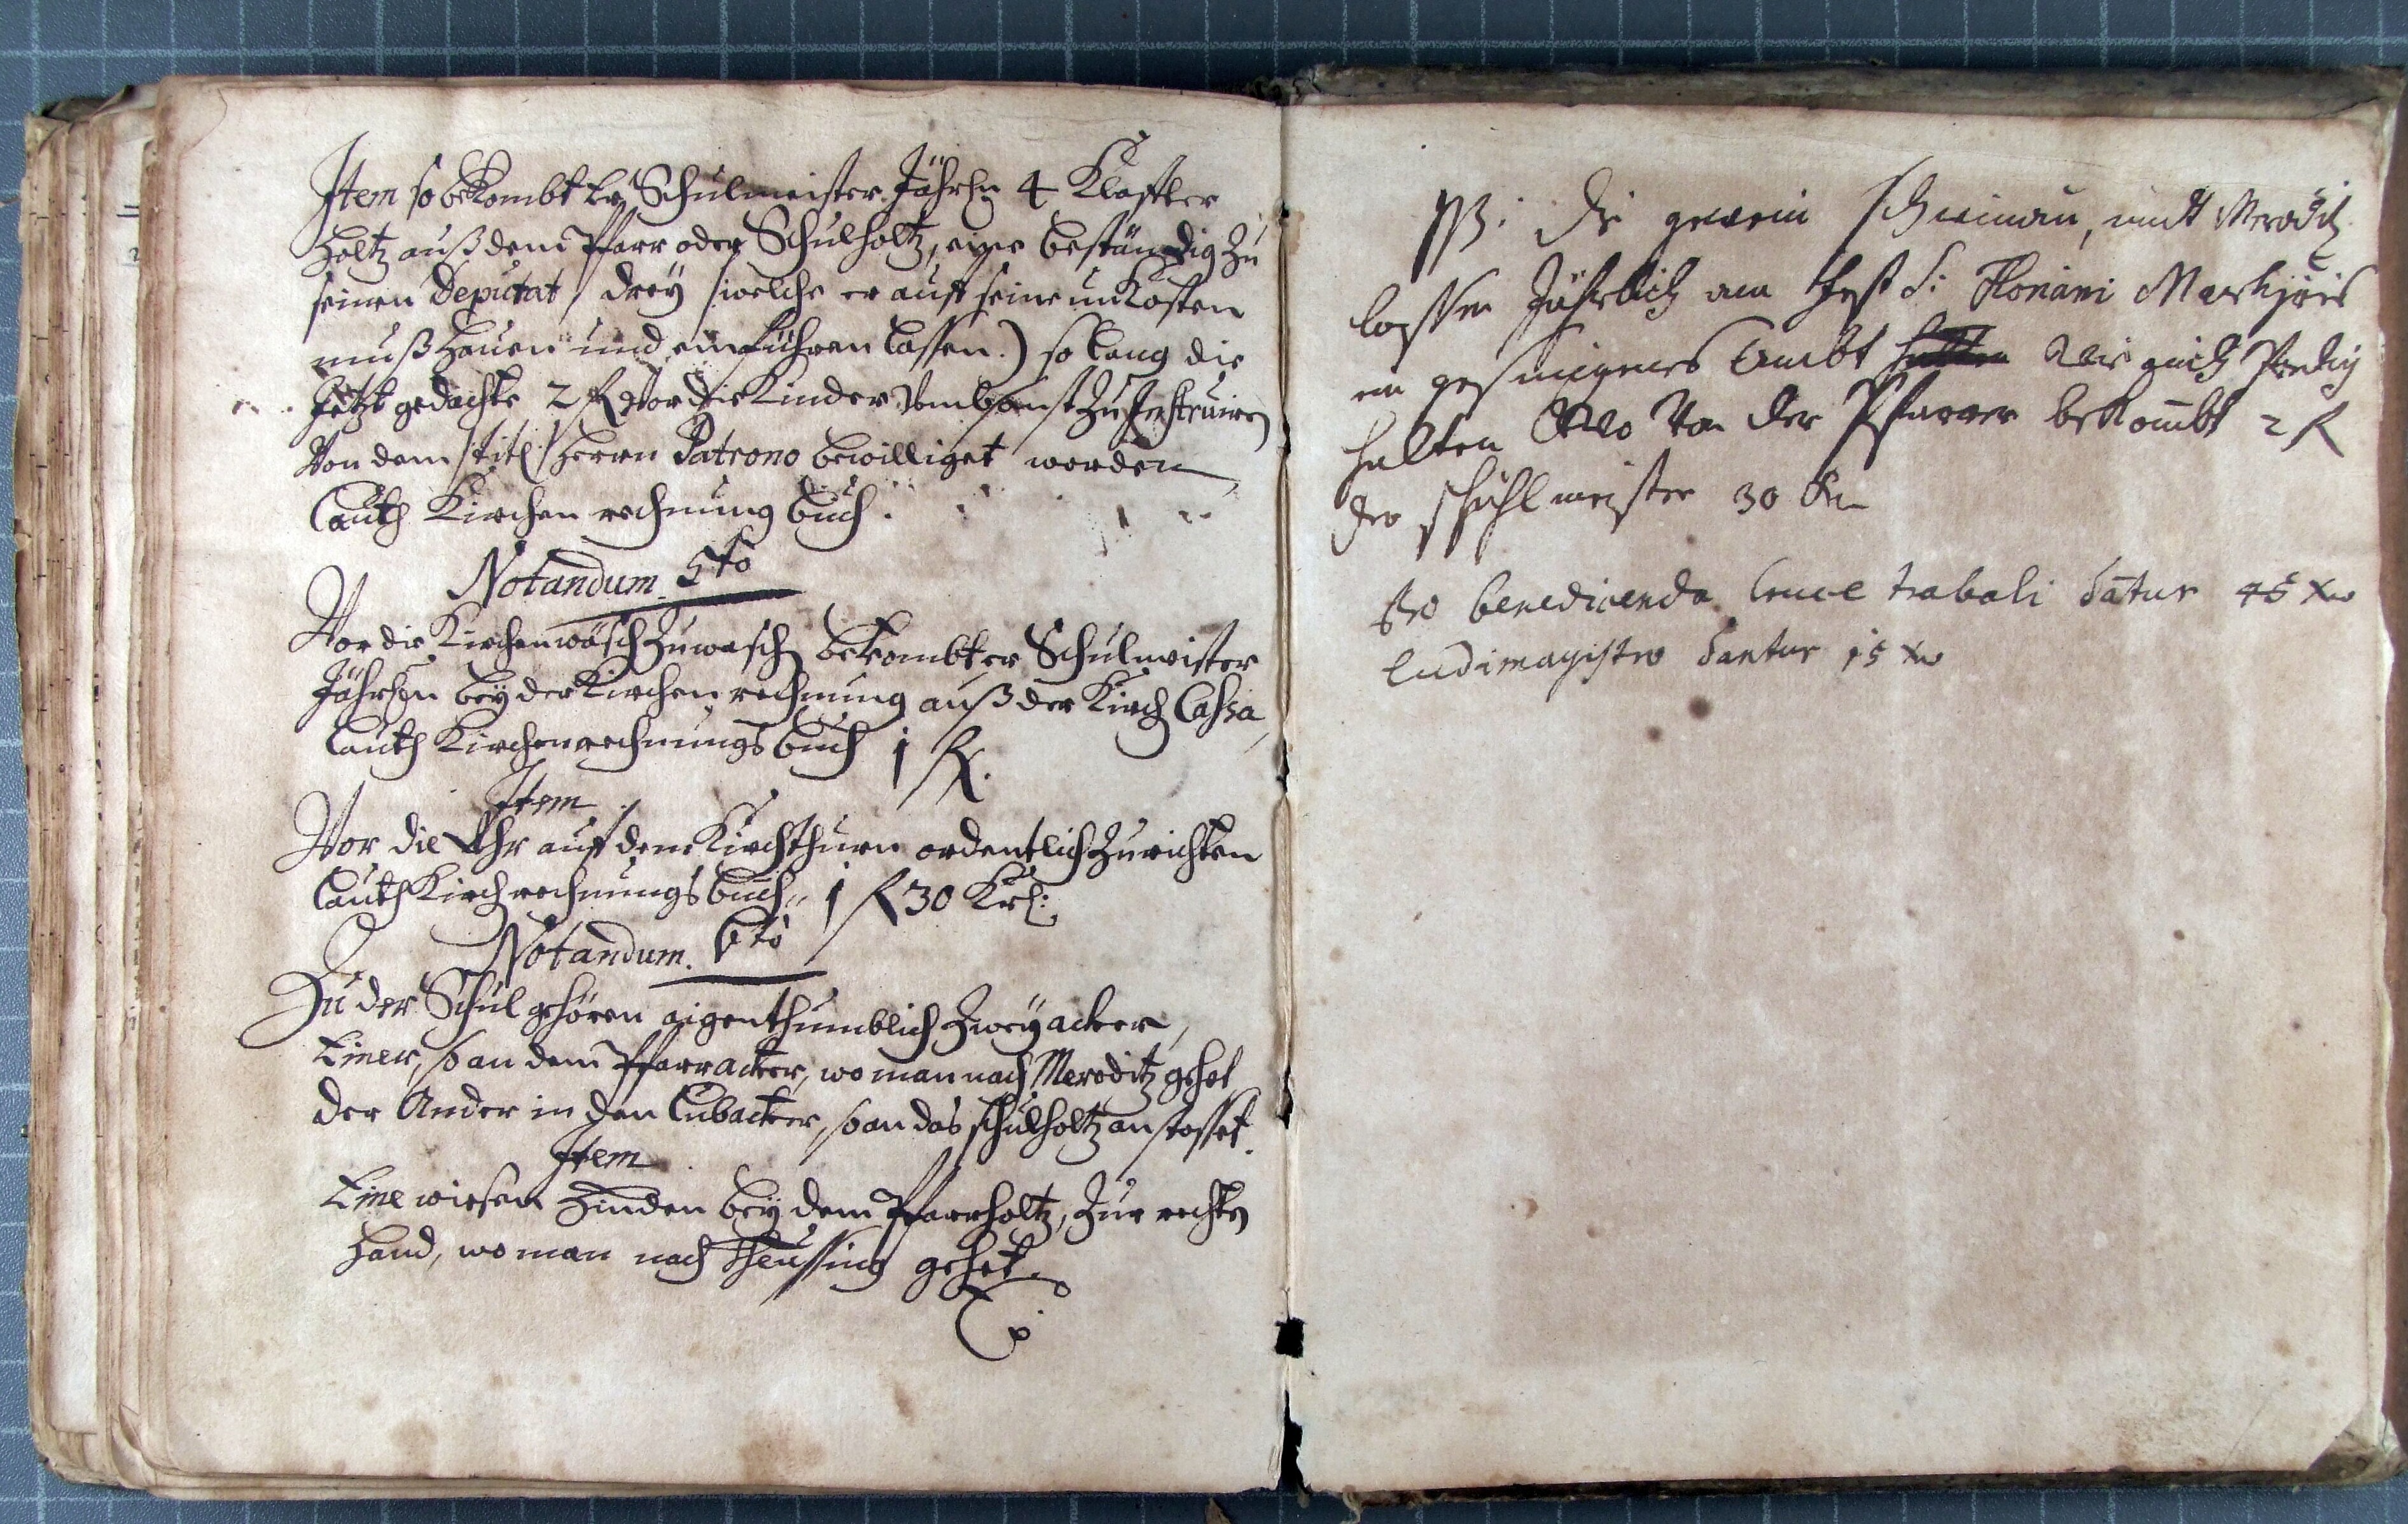 Item so bekombt der Schulmeister Jährln 4 Klaffter
Holtz auß dem Pfarr oder Schulholtz, eine beständig zu
seinen Deputat / drey /welche er auff seine unkosten
muß Hauen und einführen lassen.) so lang die
Jetzt gedachte 2 f vor die Kinder Umbsonst zu Instruiren
Von dem /titl/ Herrn Patrono bewilliget worden
lauth Kirchen rechnung buch.
Notandum. 5to
Vor die Kirchenwäsch zuwaschen bekombt er Schulmeister
Jährln bey der Kirchen rechnung auß der Kirch Cassa,
lauth Kirchenrechnungsbuch 1 f.
Item.
Vor die Uhr auff dem Kirchthurn ordentlich zurichten
lauth Kirchrechnungsbuch,, 1 f 30 Krl:
Notandum. 6to
Zu der Schul gehören aigenthumblich zwey acker,
Einer, so an dem Pfarracker, wo man nach Meroditz gehet
der Ander in den Cubacker, so an das schulholtz anstosset.
Item
Eine wiesen Hinden bey dem Pfarrholtz, zur rechten
Hand, wo man nach Theussing gehet.
Die gemein mitt Meroditz
lassen Jährlich am Fest S: Floriani Marthyris
ein gesungenes Ambt halten wie auch Predig
halten Von der Pfarrer bekombt 2 f
der schuhlmeister 30 Kr
Pro benedicenda Cruce trabali datur 45 Xr
ludimagistro dantur 15 Xr